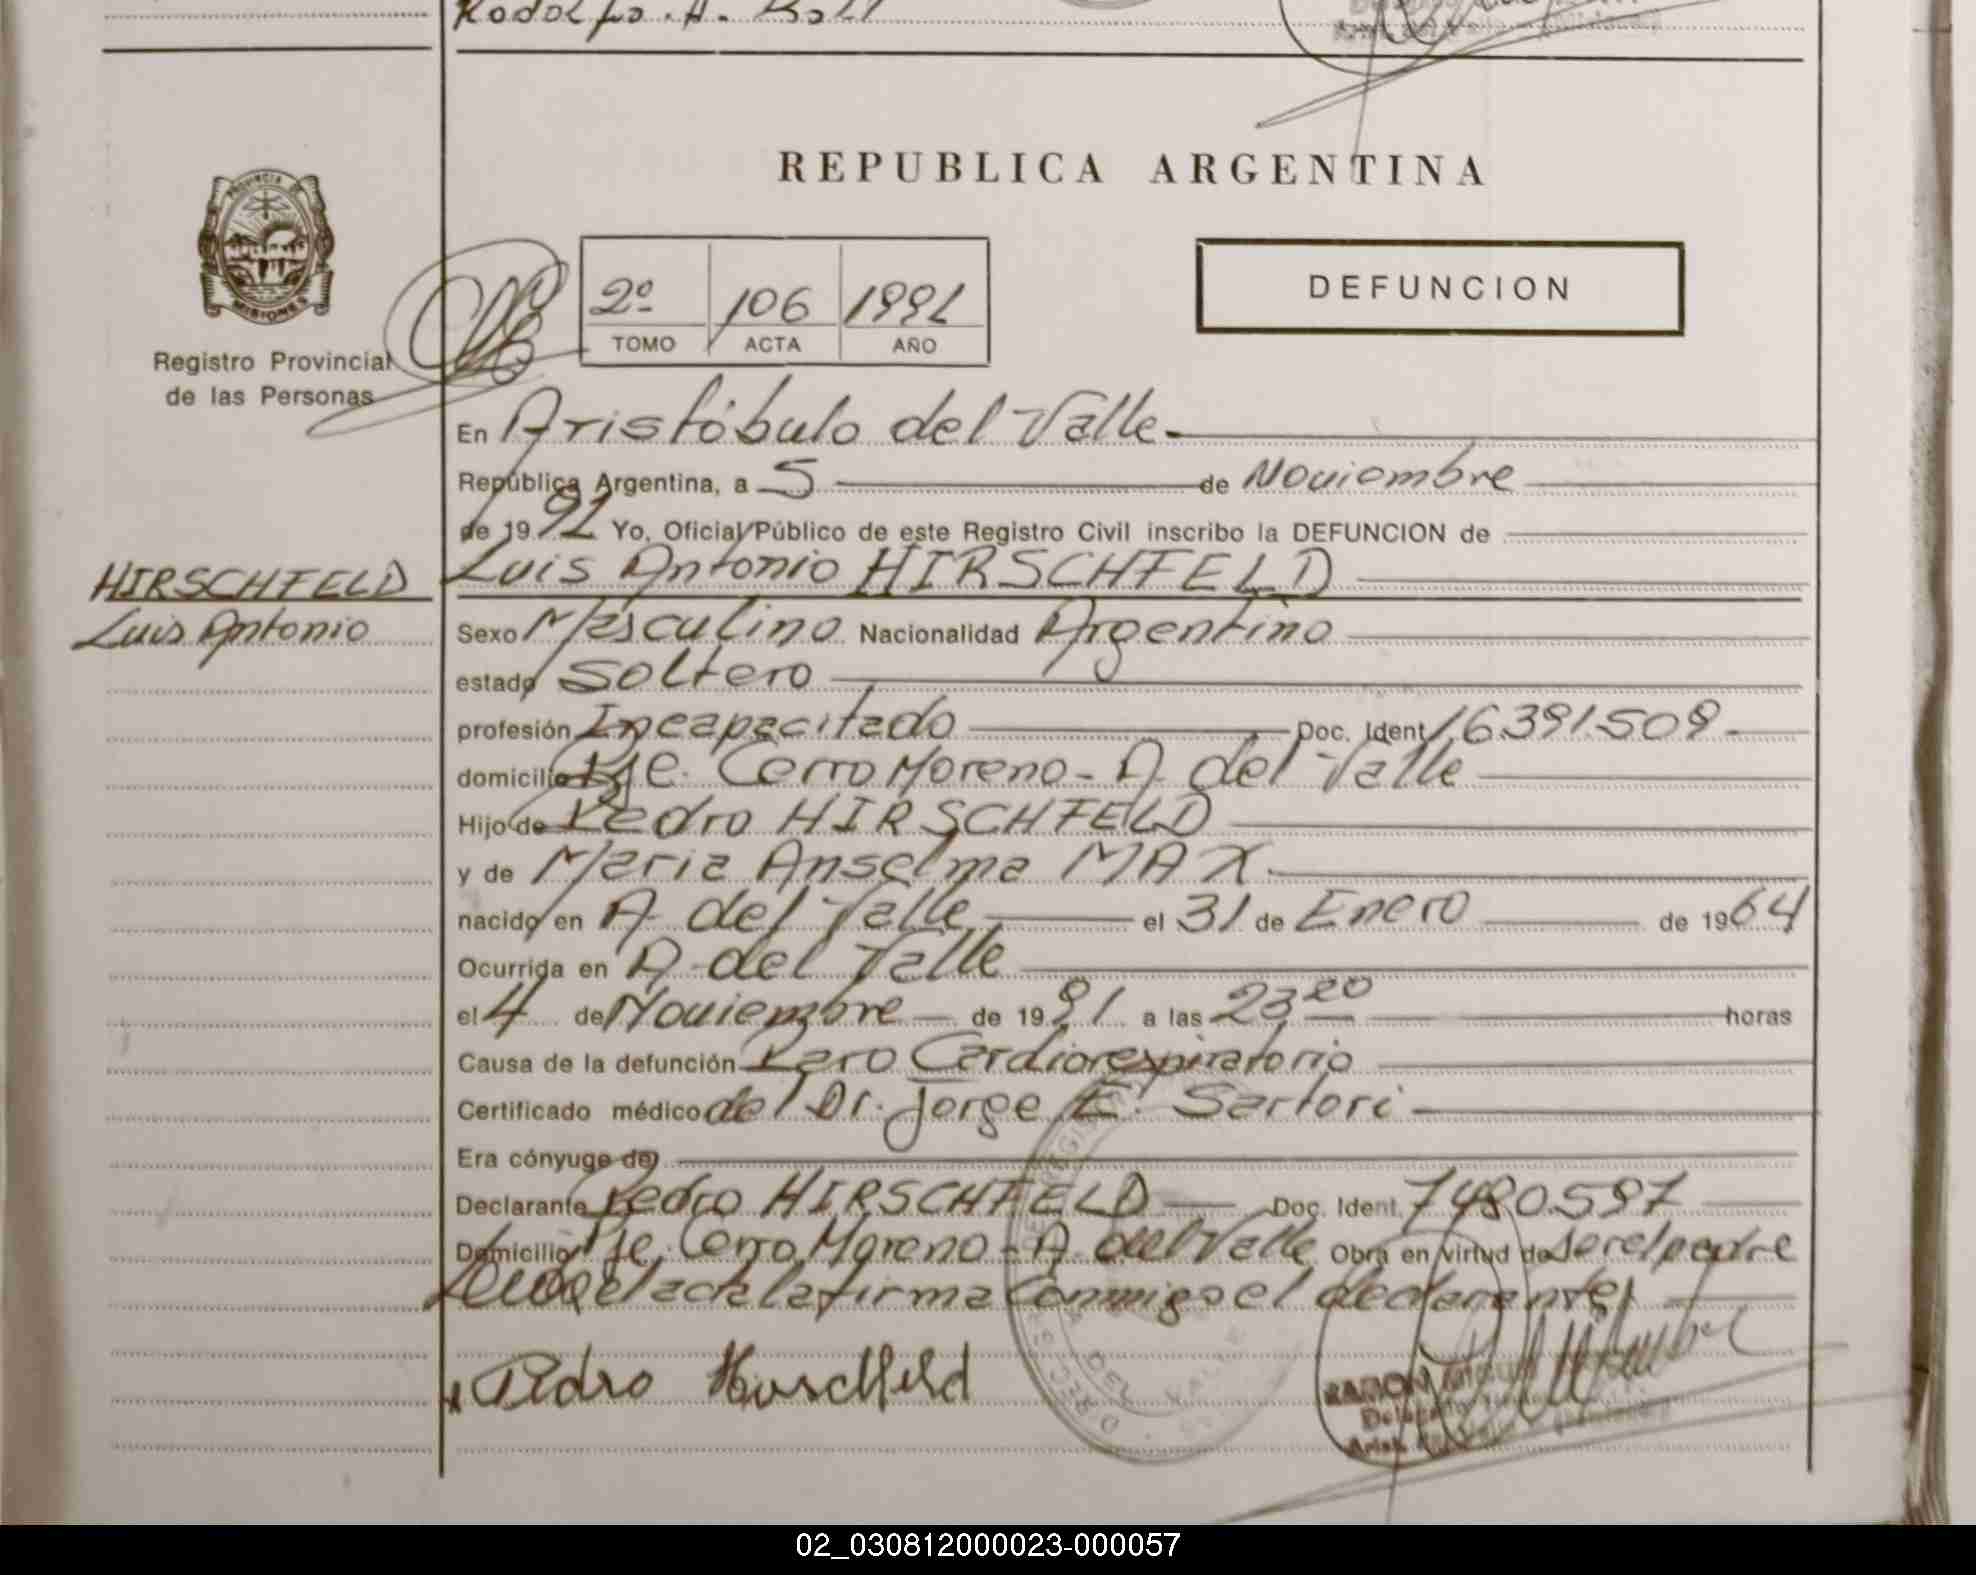 Rodolfo A.
REPUBLICA ARGENTINA
PROVINCIA DE
MISIONES
Registro Provincial
de las Personas
2º 106 1991
TOMO ACTA AÑO
DEFUNCION
En Aristóbulo del Valle.
República Argentina, a 5 de Noviembre
de 1991 Yo, Oficial Público de este Registro Civil inscribo la DEFUNCION de
HIRSCHFELD
Luis Antonio
Luis Antonio HIRSCHFELD
Sexo Masculino Nacionalidad Argentino
estado Soltero
profesión Incapacitado Doc. Ident. 16.391.509
domicilio Pje. Cerro Moreno - A. del Valle
Hijo de Pedro HIRSCHFELD
y de Maria Anselma MAX.
nacido en A. del Valle el 31 de Enero de 1964
Ocurrida en A. del Valle
el 4 de Noviembre de 1991 a las 23 20 horas
Causa de la defunción Paro Cardiorespiratorio
Certificado médico del Dr. Jorge E. Sartori
Era cónyuge de
Declarante Pedro HIRSCHFELD Doc. Ident. 7.480.597
Domicilio Pje. Cerro Moreno - A. del Valle Obra en virtud de ser el padre
Leida el acta la firma conmigo el declarante
Pedro Hirschfeld
RAMON
DEL VALLE
02_030812000023-000057